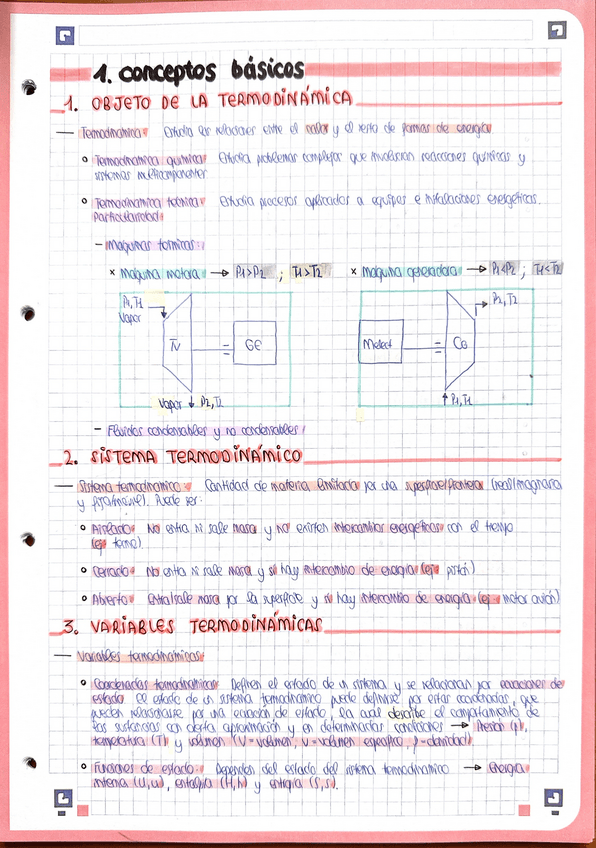 1. conceptos básicos
1. OBJETO DE LA TERMODINÁMICA
— Termodinámica: Estudia las relaciones entre el calor y el resto de formas de energía
° Termodinámica química: Estudia problemas complejos que involucran reacciones químicas y
sistemas multicomponentes
° Termodinámica técnica: Estudia procesos aplicados a equipos e instalaciones energéticas.
Particularidad:
- Máquinas térmicas:
× Máquina motora → P1>P2 ; T1>T2 × Máquina generadora → P1<P2 ; T1<T2
P1, T1 → P2, T2
Vapor
TV = GE Motor = CO
Vapor ↓ P2, T2 ↑ P1, T1
- Fluidos condensables y no condensables
2. SISTEMA TERMODINÁMICO
— Sistema termodinámico: Cantidad de materia limitada por una superficie/frontera (real/imaginaria
y fija/móvil). Puede ser:
° Aislado: No entra ni sale masa y no existen intercambios energéticos con el tiempo
(ej: termo).
° Cerrado: No entra ni sale masa y sí hay intercambio de energía (ej: pistón)
° Abierto: Entra/sale masa por la superficie y sí hay intercambio de energía (ej: motor avión)
3. VARIABLES TERMODINÁMICAS
— Variables termodinámicas:
° Coordenadas termodinámicas: Definen el estado de un sistema y se relacionan por ecuaciones de
estado. El estado de un sistema termodinámico puede definirse por estas coordenadas, que
pueden relacionarse por una ecuación de estado, la cual describe el comportamiento de
las sustancias con cierta aproximación y en determinadas condiciones → Presión (p),
temperatura (T) y volumen (V-volumen, v-volumen específico, ρ-densidad).
° Funciones de estado: Dependen del estado del sistema termodinámico → Energía
interna (U,u), entalpía (H,h) y entropía (S,s).